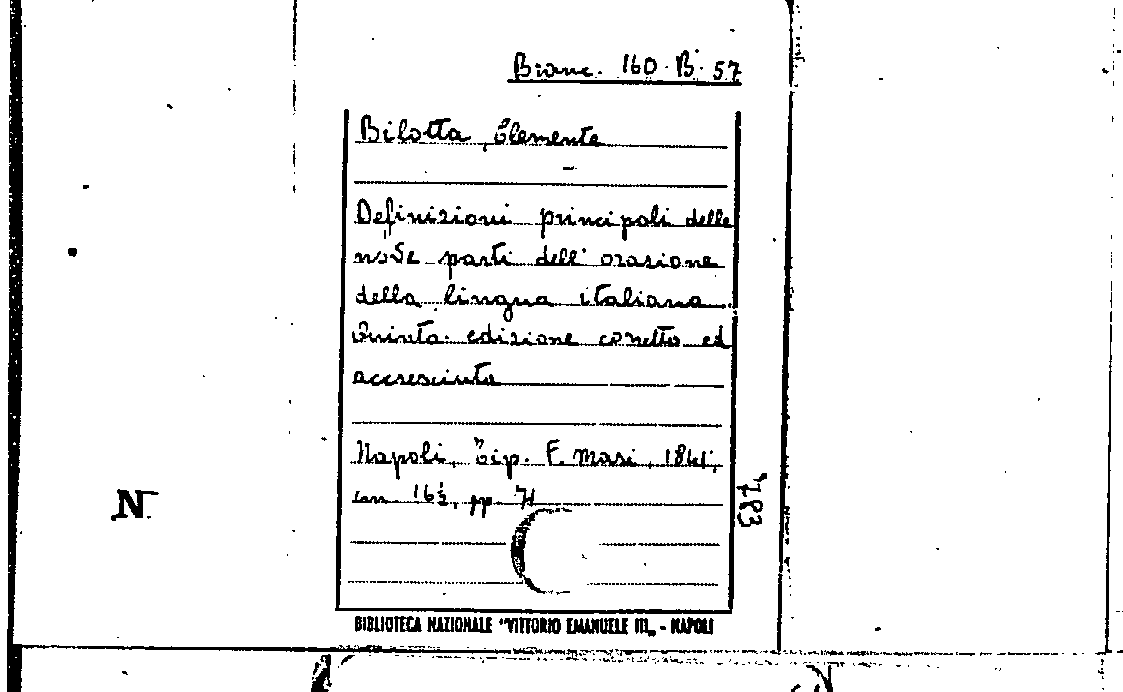 Branc. 160. B. 57
Bilotta, Clemente
Definizioni principali delle
nove parti dell'orazione
della lingua italiana.
Quinta edizione corretta ed
accresciuta
Napoli, Tip. F. Masi, 1841,
cm 16½, pp. 71
783
N
BIBLIOTECA NAZIONALE "VITTORIO EMANUELE III„ - NAPOLI